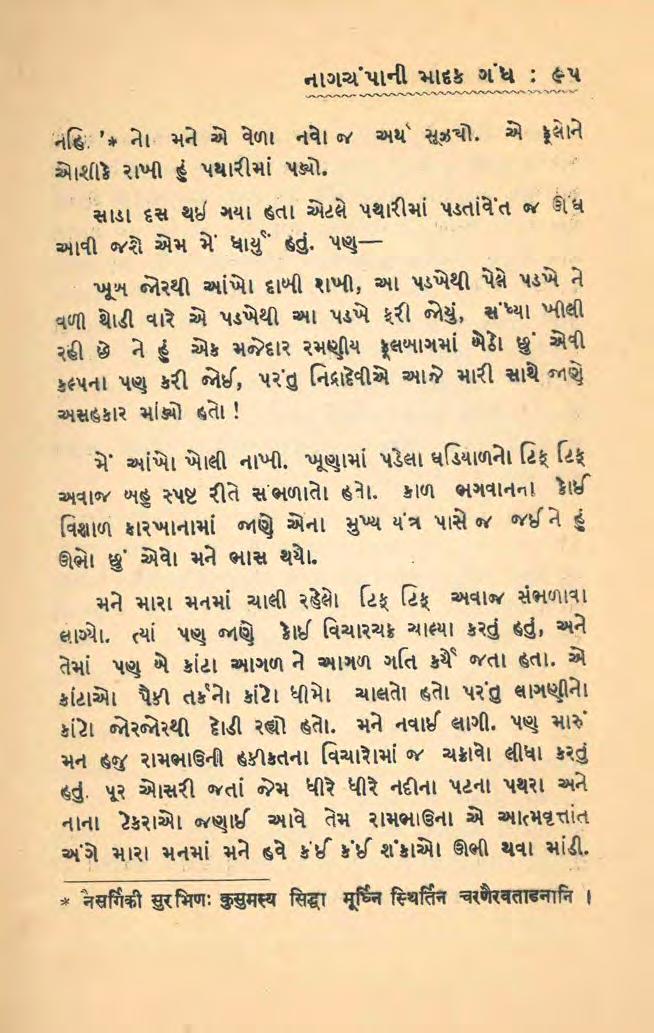 નાગચંપાની માદક ગંધ : ૯૫
નહિ.'* નો મને એ વેળા નવો જ અર્થ સૂઝ્યો. એ ફૂલોને
ઓશીકે રાખી હું પથારીમાં પડ્યો.
સાડા દસ થઈ ગયા હતા એટલે પથારીમાં પડતાંવેંત જ ઊંઘ
આવી જશે એમ મેં ધાર્યું હતું. પણ—
ખૂબ જોરથી આંખો દાબી રાખી, આ પડખેથી પેલે પડખે ને
વળી થોડી વારે એ પડખેથી આ પડખે ફરી જોયું, સંધ્યા ખીલી
રહી છે ને હું એક મજેદાર રમણીય ફૂલબાગમાં બેઠો છું એવી
કલ્પના પણ કરી જોઈ, પરંતુ નિદ્રાદેવીએ આજે મારી સાથે જાણે
અસહકાર માંડ્યો હતો !
મેં આંખો ખોલી નાખી. ખૂણામાં પડેલા ઘડિયાળનો ટિક્ ટિક્
અવાજ બહુ સ્પષ્ટ રીતે સંભળાતો હતો. કાળ ભગવાનના કોઈ
વિશાળ કારખાનામાં જાણે એના મુખ્ય યંત્ર પાસે જ જઈને હું
ઊભો છું એવો મને ભાસ થયો.
મને મારા મનમાં ચાલી રહેલો ટિક્ ટિક્ અવાજ સંભળાવા
લાગ્યો. ત્યાં પણ જાણે કોઈ વિચારચક્ર ચાલ્યા કરતું હતું, અને
તેમાં પણ બે કાંટા આગળ ને આગળ ગતિ કર્યે જતા હતા. એ
કાંટાઓ પૈકી તર્કનો કાંટો ધીમો ચાલતો હતો પરંતુ લાગણીનો
કાંટો જોરજોરથી દોડી રહ્યો હતો. મને નવાઈ લાગી. પણ મારું
મન હજુ રામભાઉની હકીકતના વિચારોમાં જ ચક્રાવો લીધા કરતું
હતું. પૂર ઓસરી જતાં જેમ ધીરે ધીરે નદીના પટના પથરા અને
નાના ટેકરાઓ જણાઈ આવે તેમ રામભાઉના એ આત્મવૃત્તાંત
અંગે મારા મનમાં મને હવે કંઈ કંઈ શંકાઓ ઊભી થવા માંડી.
* नैसर्गिकी सुरभिणः कुसुमस्य सिद्धा मूर्ध्नि स्थितिर्न चरणैरवताडनानि ।